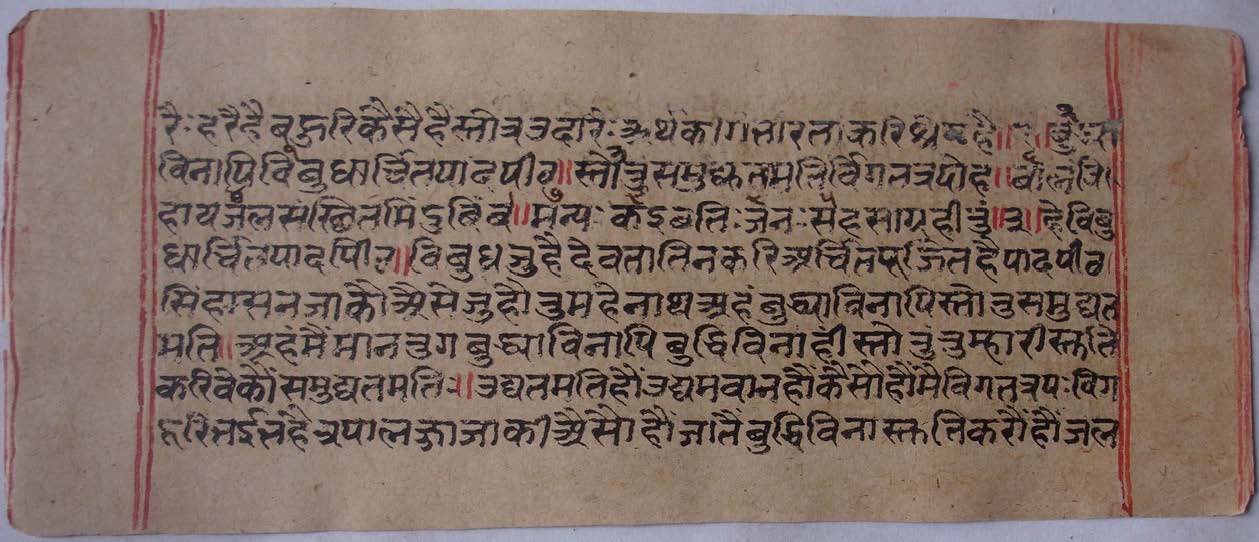 रैः हरैहै बहुरि कैसै है स्तोत्र उदारैः अर्थ की गंभीरता करि श्रेष्ठ है॥
विनापि विबुधार्चितपादपीठ॥ स्तोतुं समुद्यतमतिर्विगतत्रपोहं॥ बालं वि
हाय जलसंस्थितमिंदुबिंब॥ मन्यः कः इछति जनः सहसाग्रहीतुं॥३॥ हे विबु
धार्चितपादपीठ॥ विबुध जु है देवता तिन करि अर्चित पूजित है पादपीठ
सिंहासन जाकौ अैसे जु हौ तुम हे नाथ अहं बुद्ध्या विनापि स्तोतु समुद्यत
मति॥ अहं मैं मानतुंग बुद्ध्या विनापि बुद्धि विना ही स्तोतुं तुम्हारी स्तुति
करिवे कौं समुद्यतमतिः॥ उद्यतमति हौं उद्यमवान हौं कैसौ हौं मै विगतत्रपः विग
हरि गई है त्रपा लज्जा जाकी अैसौ हौं जातै बुद्धि विना स्तुति करौं हौं जल